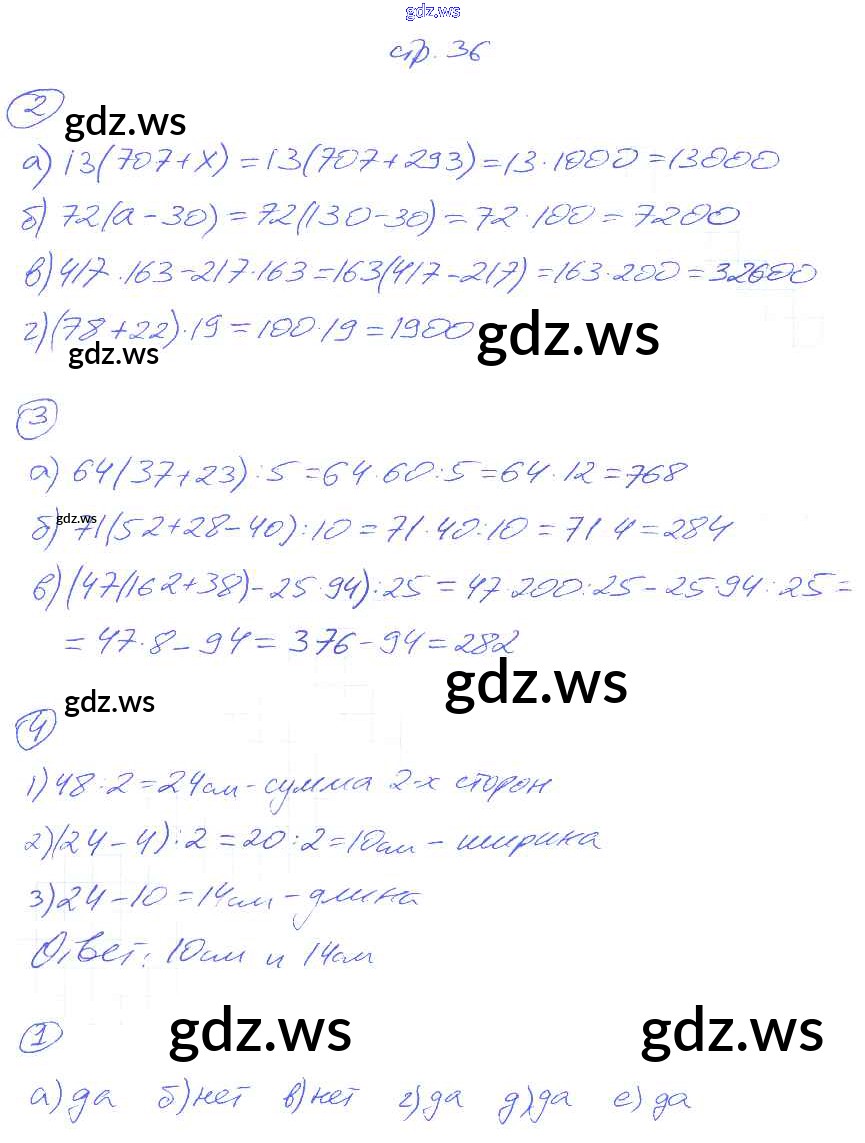 gdz.ws
стр. 36
2
gdz.ws
а) 13(707+х) = 13(707+293) = 13·1000 = 13000
б) 72(а-30) = 72(130-30) = 72·100 = 7200
в) 417·163-217·163 = 163(417-217) = 163·200 = 32600
г) (78+22)·19 = 100·19 = 1900
gdz.ws
gdz.ws
3
а) 64(37+23):5 = 64·60:5 = 64·12 = 768
gdz.ws
б) 71(52+28-40):10 = 71·40:10 = 71·4 = 284
в) (47(162+38)-25·94):25 = 47·200:25-25·94:25 =
= 47·8-94 = 376-94 = 282
gdz.ws
gdz.ws
4
1) 48:2 = 24см - сумма 2-х сторон
2) (24-4):2 = 20:2 = 10см - ширина
3) 24-10 = 14см - длина
Ответ: 10см и 14см
gdz.ws gdz.ws
1
а) да б) нет в) нет г) да д) да е) да